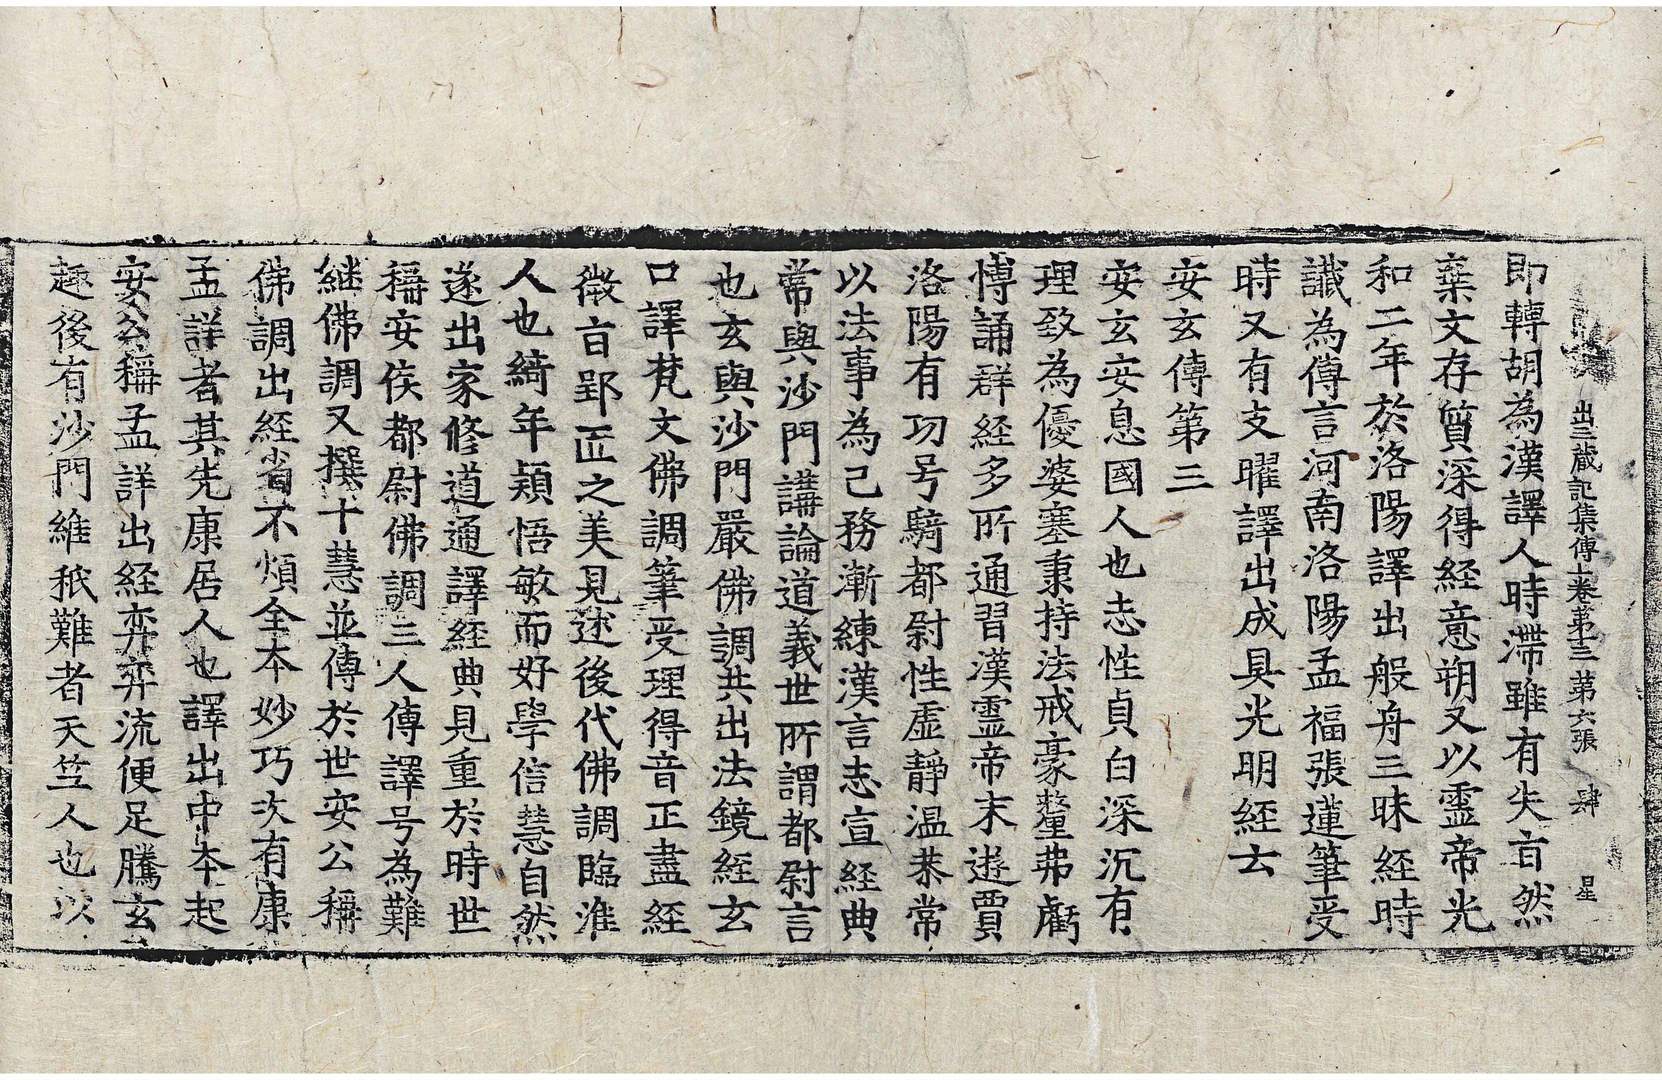 出三蔵記集傳上卷苐十三 第六張 肆 星
即轉胡為漢譯人時滯雖有失㫖然
棄文存質深得経意朔又以霊帝光
和二年於洛陽譯出般舟三昧経時
讖為傳言河南洛陽孟福張蓮筆受
時又有支曜譯出成具光明経云
安玄傳第三
安玄安息國人也志性貞白深沉有
理致為優婆塞秉持法戒豪釐弗虧
博誦群経多所通習漢霊帝末遊賈
洛陽有功号騎都尉性虛靜温恭常
以法事為己務漸練漢言志宣経典
常與沙門講論道義世所謂都尉言
也玄與沙門嚴佛調共出法鏡経玄
口譯梵文佛調筆受理得音正盡経
微㫖郢匠之美見述後代佛調臨淮
人也綺年穎悟敏而好學信慧自然
遂出家修道通譯経典見重於時世
稱安侯都尉佛調三人傳譯号為難
継佛調又撰十慧並傳於世安公稱
佛調出経省不煩全本妙巧次有康
孟詳者其先康居人也譯出中本起
安公稱孟詳出経弈弈流便足騰玄
趣後有沙門維祇難者天竺人也以